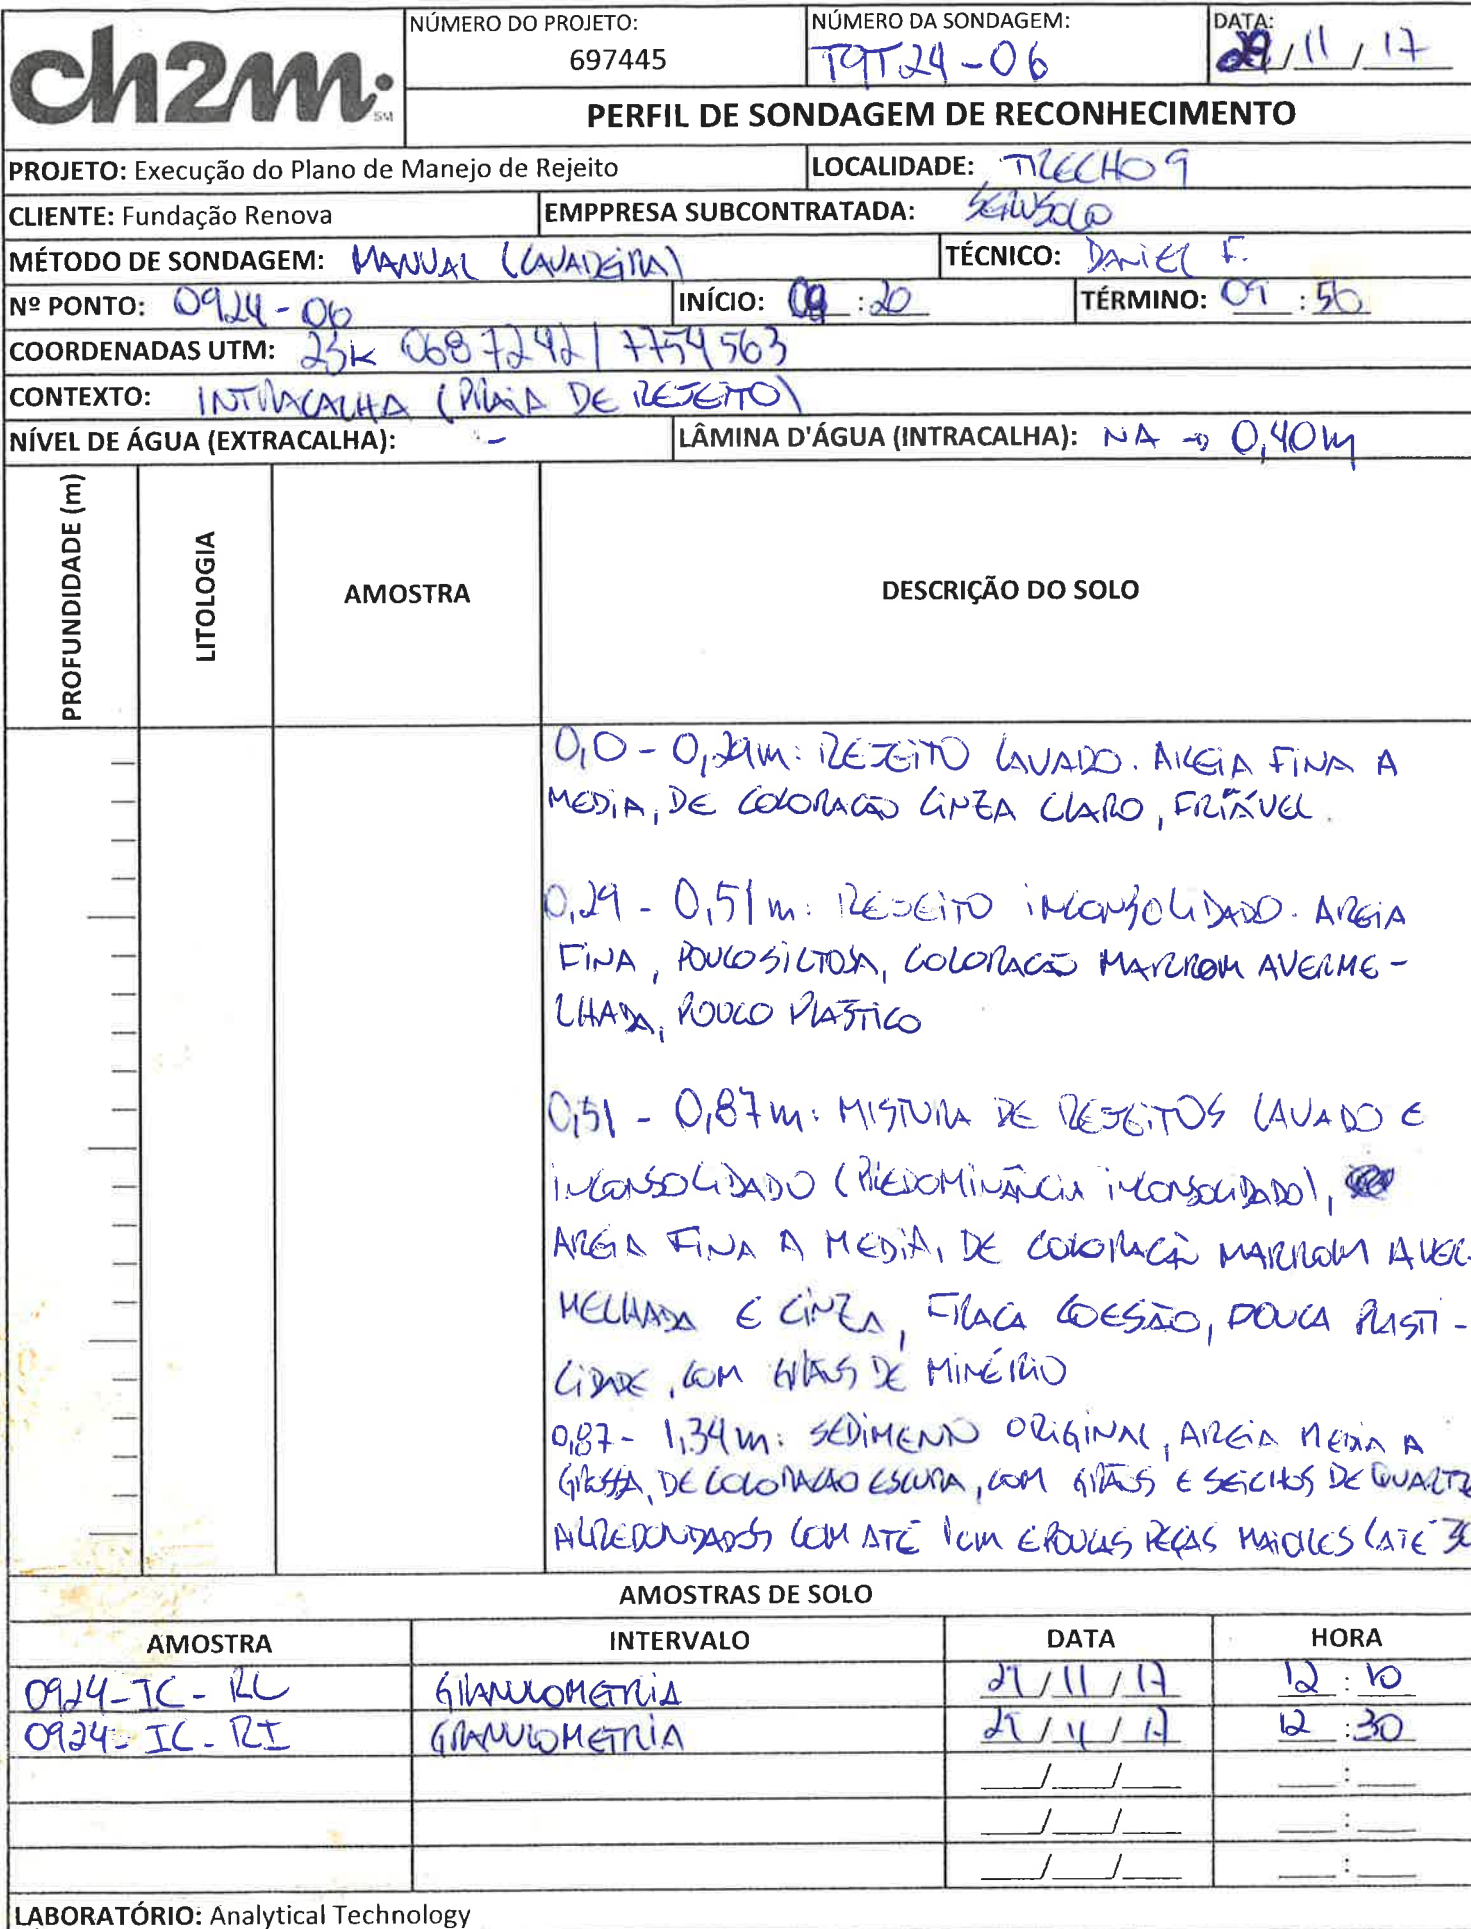 ch2m: SM
NÚMERO DO PROJETO:
697445
NÚMERO DA SONDAGEM:
T9T24-06
DATA:
29/11/17
PERFIL DE SONDAGEM DE RECONHECIMENTO
PROJETO: Execução do Plano de Manejo de Rejeito
LOCALIDADE: TRECHO 9
CLIENTE: Fundação Renova
EMPPRESA SUBCONTRATADA: SERVSOLO
MÉTODO DE SONDAGEM: MANUAL (CAVADEIRA)
TÉCNICO: DANIEL F.
Nº PONTO: 0924-06
INÍCIO: 09:20
TÉRMINO: 09:56
COORDENADAS UTM: 23K 0687242 / 7754563
CONTEXTO: INTRACALHA (PRAIA DE REJEITO)
NÍVEL DE ÁGUA (EXTRACALHA): -
LÂMINA D'ÁGUA (INTRACALHA): NA → 0,40m
PROFUNDIDADE (m)
LITOLOGIA
AMOSTRA
DESCRIÇÃO DO SOLO
0,0 - 0,29m: REJEITO LAVADO. AREIA FINA A
MEDIA, DE COLORAÇÃO CINZA CLARO, FRIÁVEL.
0,29 - 0,51m: REJEITO INCONSOLIDADO. AREIA
FINA, POUCO SILTOSA, COLORAÇÃO MARROM AVERME-
LHADA, POUCO PLASTICO
0,51 - 0,87m: MISTURA DE REJEITOS LAVADO E
INCONSOLIDADO (PREDOMINÂNCIA INCONSOLIDADO),
AREIA FINA A MEDIA, DE COLORAÇÃO MARROM AVER-
MELHADA E CINZA, FRACA COESÃO, POUCA PLASTI-
CIDADE, COM GRÃOS DE MINÉRIO
0,87 - 1,34m: SEDIMENTO ORIGINAL, AREIA MEDIA A
GROSSA, DE COLORAÇÃO ESCURA, COM GRÃOS E SEICHOS DE QUARTZ
ARREDONDADOS COM ATÉ 1cm E POUCAS PEÇAS MAIORES (ATÉ 3C
AMOSTRAS DE SOLO
AMOSTRA INTERVALO DATA HORA
0924-IC-RL GRANULOMETRIA 29/11/17 12:10
0924-IC-RI GRANULOMETRIA 29/11/17 12:30
___/___/___ ___:___
___/___/___ ___:___
___/___/___ ___:___
LABORATÓRIO: Analytical Technology